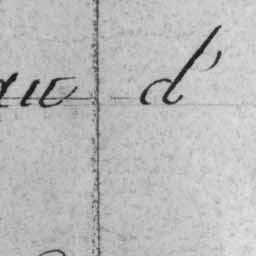 au d'